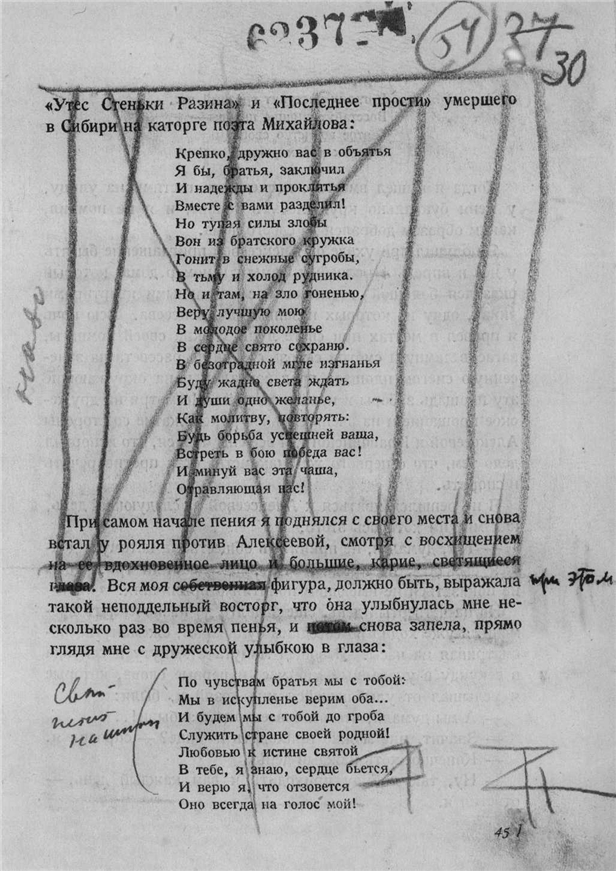 6237
54
37
30
«Утес Стеньки Разина» и «Последнее прости» умершего
в Сибири на каторге поэта Михайлова:
Крепко, дружно вас в объятья
Я бы, братья, заключил
И надежды и проклятья
Вместе с вами разделил!
Но тупая силы злобы
Вон из братского кружка
Гонит в снежные сугробы,
В тьму и холод рудника.
Но и там, на зло гоненью,
Веру лучшую мою
В молодое поколенье
В сердце свято сохраню.
В безотрадной мгле изгнанья
Буду жадно света ждать
И души одно желанье,
Как молитву, повторять:
Будь борьба успешней ваша,
Встреть в бою победа вас!
И минуй вас эта чаша,
Отравляющая нас!
надо
При самом начале пения я поднялся с своего места и снова
встал у рояля против Алексеевой, смотря с восхищением
на ее вдохновенное лицо и большие, карие, светящиеся
Вся моя собственная фигура, должно быть, выражала при этом
такой неподдельный восторг, что она улыбнулась мне не-
сколько раз во время пенья, и потом снова запела, прямо
глядя мне с дружеской улыбкою в глаза:
По чувствам братья мы с тобой:
Мы в искупленье верим оба...
И будем мы с тобой до гроба
Служить стране своей родной!
Любовью к истине святой
В тебе, я знаю, сердце бьется,
И верю я, что отзовется
Оно всегда на голос мой!
45